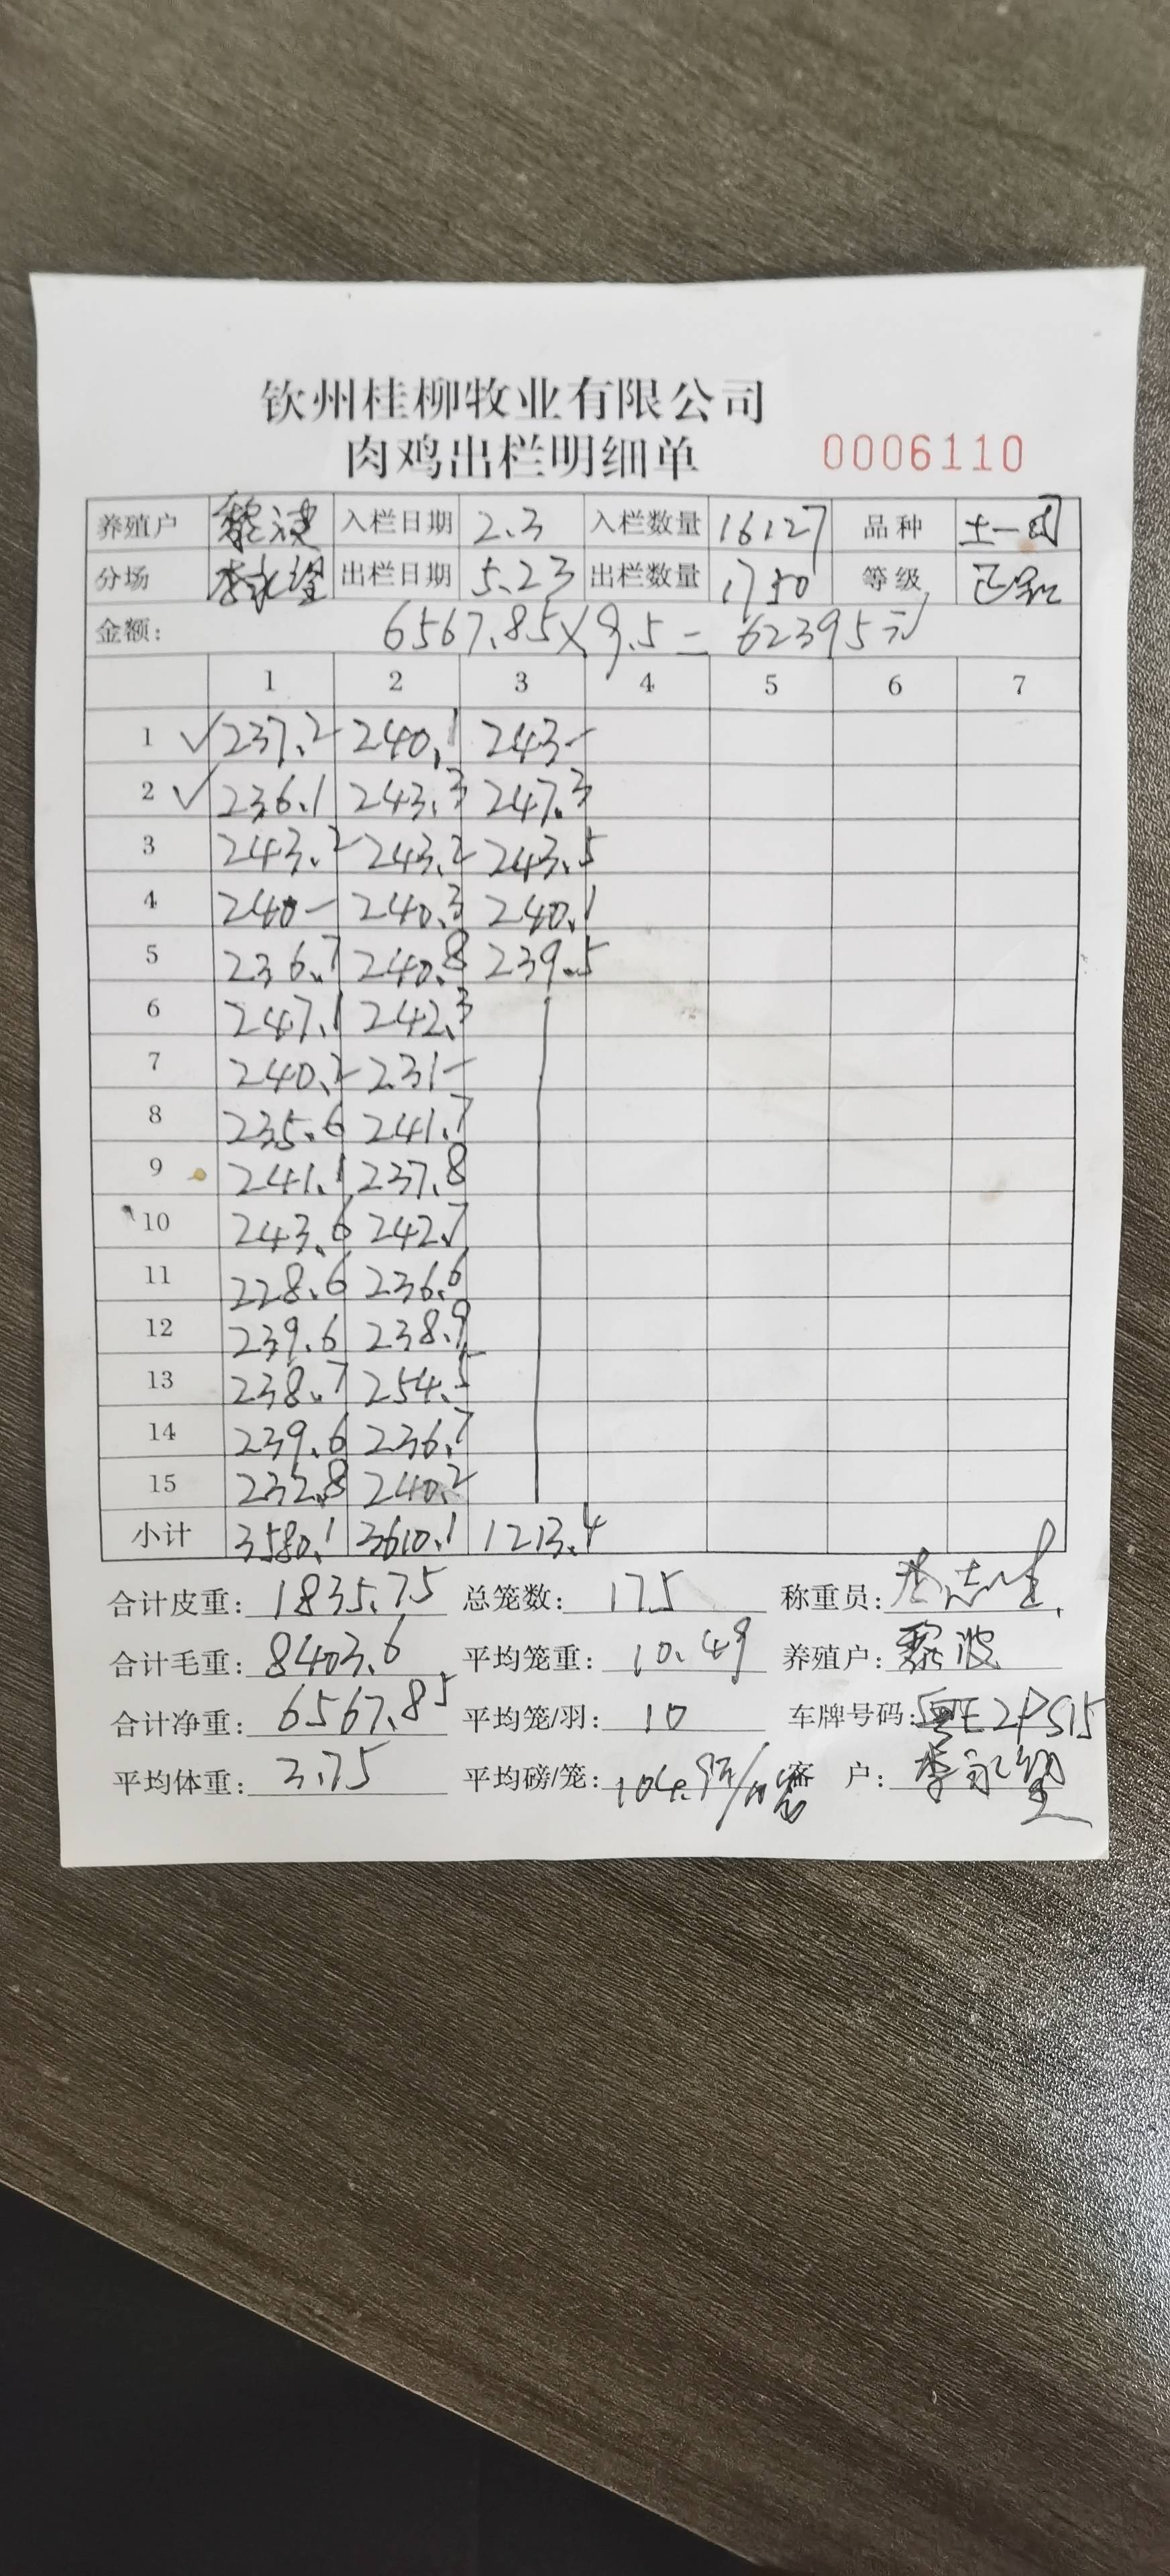 钦州桂柳牧业有限公司
肉鸡出栏明细单 0006110
养殖户 黎波 入栏日期 2.3 入栏数量 16127 品种 土一
分场 李永 出栏日期 5.23 出栏数量 1750 等级 正
金额: 6567.85×9.5=62395元
1 2 3 4 5 6 7
1 ✓237.2 240.1 243-
2 ✓236.1 243.3 247.3
3 243.2 243.2 243.5
4 240- 240.3 240.1
5 236.7 240.8 239.5
6 247.1 242.3
7 240.2 231-
8 235.6 241.7
9 241.1 237.8
10 243.6 242.7
11 228.6 236.6
12 239.6 238.9
13 238.7 254.5
14 239.6 236.7
15 232.8 240.2
小计 3580.1 3610.1 1213.4
合计皮重: 1835.75 总笼数: 175 称重员:
合计毛重: 8403.6 平均笼重: 10.49 养殖户: 黎波
合计净重: 6567.85 平均笼/羽: 10 车牌号码: 粤E2PS15
平均体重: 3.75 平均磅/笼: 104.9斤/笼 客 户: 李永